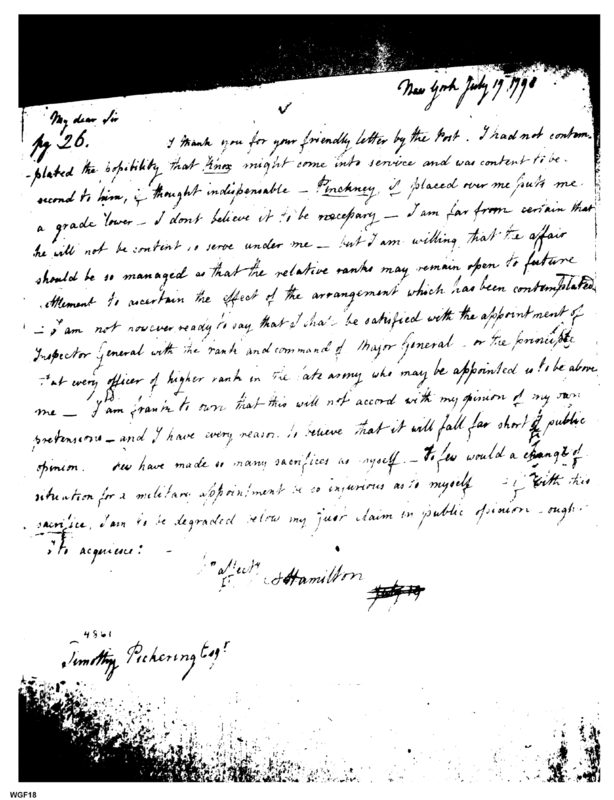 New York July 19 1798
My dear Sir
pg 26.
I thank you for your friendly letter by the Post. I had not contem
-plated the possibility that Knox might come into service and was content to be
second to him, if thought indispensable - Pinckney, if placed over me puts me
a grade lower - I dont believe it to be necessary - I am far from certain that
he will not be content to serve under me - but I am willing that the affair
should be so managed as that the relative ranks may remain open to future
settlement to ascertain the effect of the arrangement which has been contemplated
- I am not however ready to say that I shall be satisfied with the appointment of
Inspector General with the rank and command of Major General - or the principle
that every officer of higher rank in the late army who may be appointed is to be above
me - I am frank to own that this will not accord with my opinion of my own
pretensions - and I have every reason to believe that it will fall far short of public
opinion. Few have made so many sacrifices as myself - To few would a change of
situation for a military appointment be so injurious as to myself - if with this
sacrifice, I am to be degraded below my just claim in public opinion - ought
I to acquiesce?
A Hamilton
July 19
4861
Timothy Pickering Esqr
WGF18